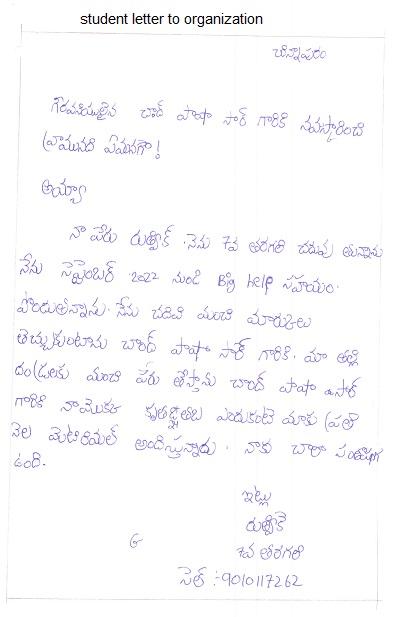 student letter to organization
చిన్నాపురం
గౌరవనీయులైన చాంద్ పాషా సార్ గారికి నమస్కారించి
వ్రాయునది ఏమనగా!
అయ్యా
నా పేరు రుత్విక్. నేను 7వ తరగతి చదువు తున్నాను
నేను సెప్టెంబర్ 2022 నుండి Big help సహాయం.
పొందుతున్నాను. నేను చదివి మంచి మార్కులు
తెచ్చుకుంటాను చాంద్ పాషా సార్ గారికి. మా తల్లి
దండ్రులకు మంచి పేరు తెస్తాను చాంద్ పాషా సార్
గారికి నా కృతజ్ఞతలు ఎందుకంటే మాకు ప్రతి
నెల మెటిరియల్ అందిస్తున్నారు. నాకు చాలా సంతోషంగ
ఉంది.
ఇట్లు
రుత్విక్
7వ తరగతి
సెల్ :-9010117262